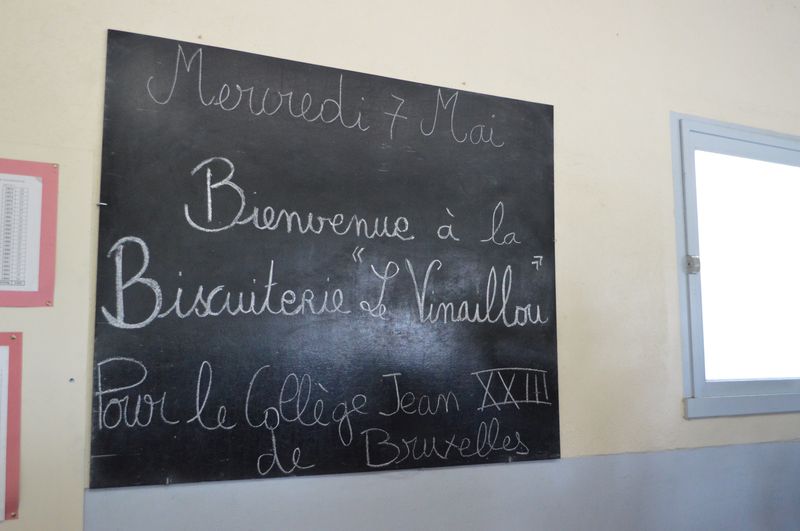 Mercredi 7 Mai
Bienvenue à la
Biscuiterie "Le Vinaillou"
Pour le Collège Jean XXIII
de Bruxelles